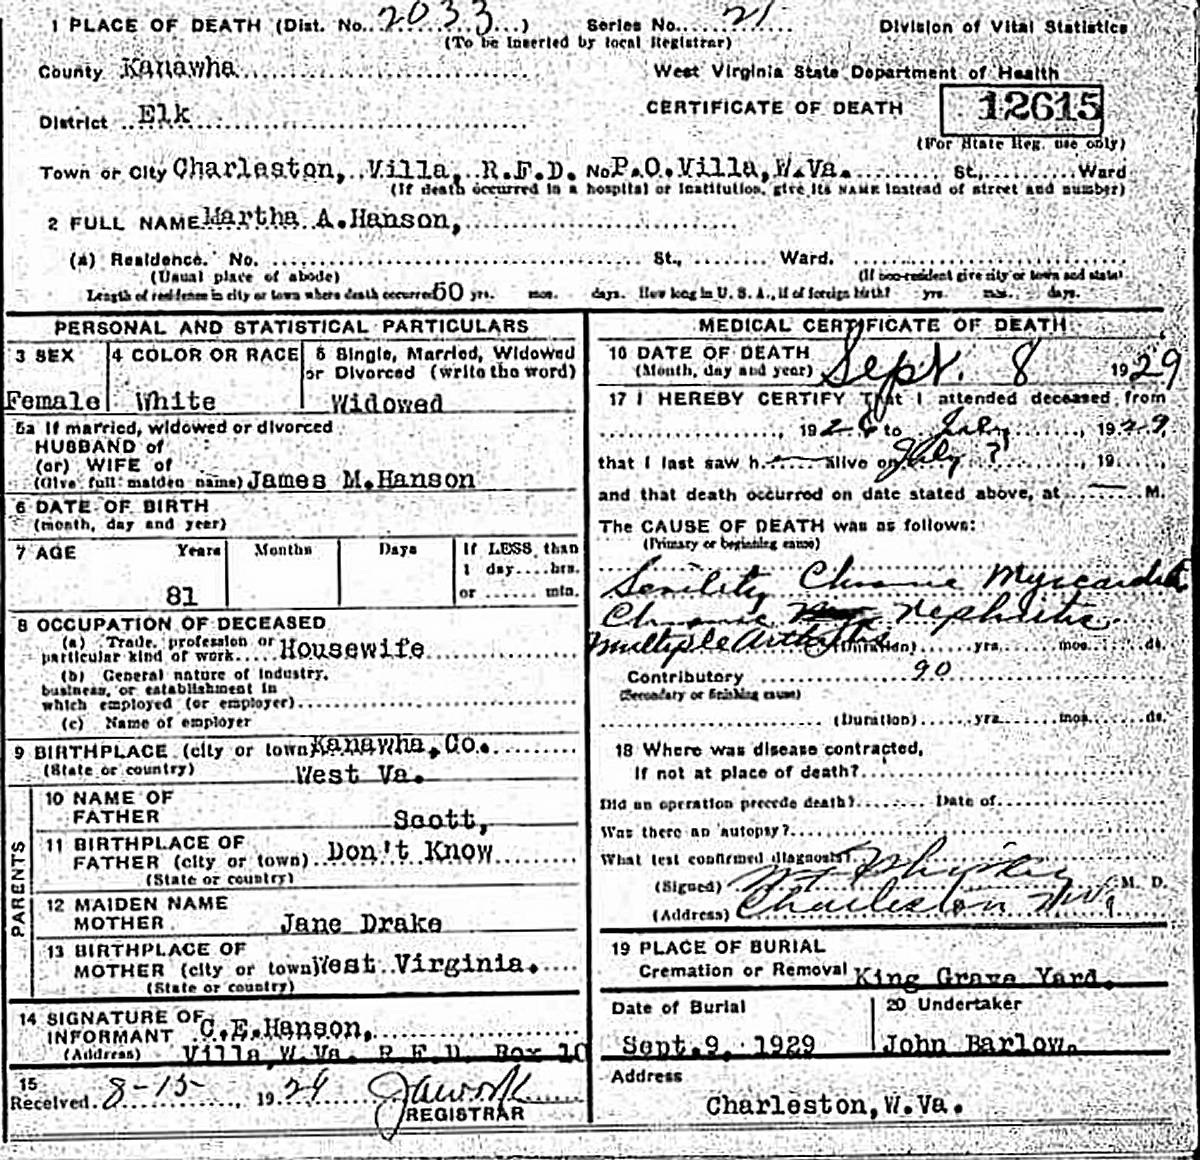 1 PLACE OF DEATH (Dist. No. 2033) Series No. 21 Division of Vital Statistics
(To be inserted by local Registrar)
County Kanawha West Virginia State Department of Health
District Elk CERTIFICATE OF DEATH 12615
(For State Reg. use only)
Town or City Charleston, Villa, R.F.D. No P.O. Villa, W.Va. St., Ward
(If death occurred in a hospital or institution, give its NAME instead of street and number)
2 FULL NAME Martha A. Hanson,
(a) Residence. No. St., Ward.
(Usual place of abode) (If non-resident give city or town and state)
Length of residence in city or town where death occurred 50 yrs. mos. days. How long in U. S. A., if of foreign birth? yrs. mos. days.
PERSONAL AND STATISTICAL PARTICULARS
3 SEX 4 COLOR OR RACE 5 Single, Married, Widowed
or Divorced (write the word)
Female White Widowed
5a If married, widowed or divorced
HUSBAND of
(or) WIFE of
(Give full maiden name) James M. Hanson
6 DATE OF BIRTH
(month, day and year)
7 AGE Years Months Days If LESS than
1 day....hrs.
81 or ...... min.
8 OCCUPATION OF DECEASED
(a) Trade, profession or
particular kind of work.... Housewife
(b) General nature of industry,
business, or establishment in
which employed (or employer)
(c) Name of employer
9 BIRTHPLACE (city or town) Kanawha, Co.
(State or country) West Va.
PARENTS
10 NAME OF
FATHER Scott,
11 BIRTHPLACE OF
FATHER (city or town) Don't Know
(State or country)
12 MAIDEN NAME
MOTHER Jane Drake
13 BIRTHPLACE OF
MOTHER (city or town) West Virginia.
(State or country)
14 SIGNATURE OF
INFORMANT C.E. Hanson,
(Address) Villa, W.Va. R.F.D. Box 10
15
Received 8-15-, 1929
REGISTRAR
MEDICAL CERTIFICATE OF DEATH
16 DATE OF DEATH
(Month, day and year) Sept. 8 1929
17 I HEREBY CERTIFY That I attended deceased from
, 192 to July, 1929,
that I last saw h alive on July ?, 19
and that death occurred on date stated above, at M.
The CAUSE OF DEATH was as follows:
(Primary or beginning cause)
Senility, Chronic Myocarditis
Chronic Nephritis
Multiple Arthritis (Duration) yrs. mos. ds.
Contributory 90
(Secondary or finishing cause)
(Duration) yrs. mos. ds.
18 Where was disease contracted,
if not at place of death?
Did an operation precede death? Date of
Was there an autopsy?
What test confirmed diagnosis?
(Signed) M. D.
(Address) Charleston W.Va
19 PLACE OF BURIAL
Cremation or Removal King Grave Yard.
Date of Burial 20 Undertaker
Sept. 9, 1929 John Barlow.
Address
Charleston, W.Va.